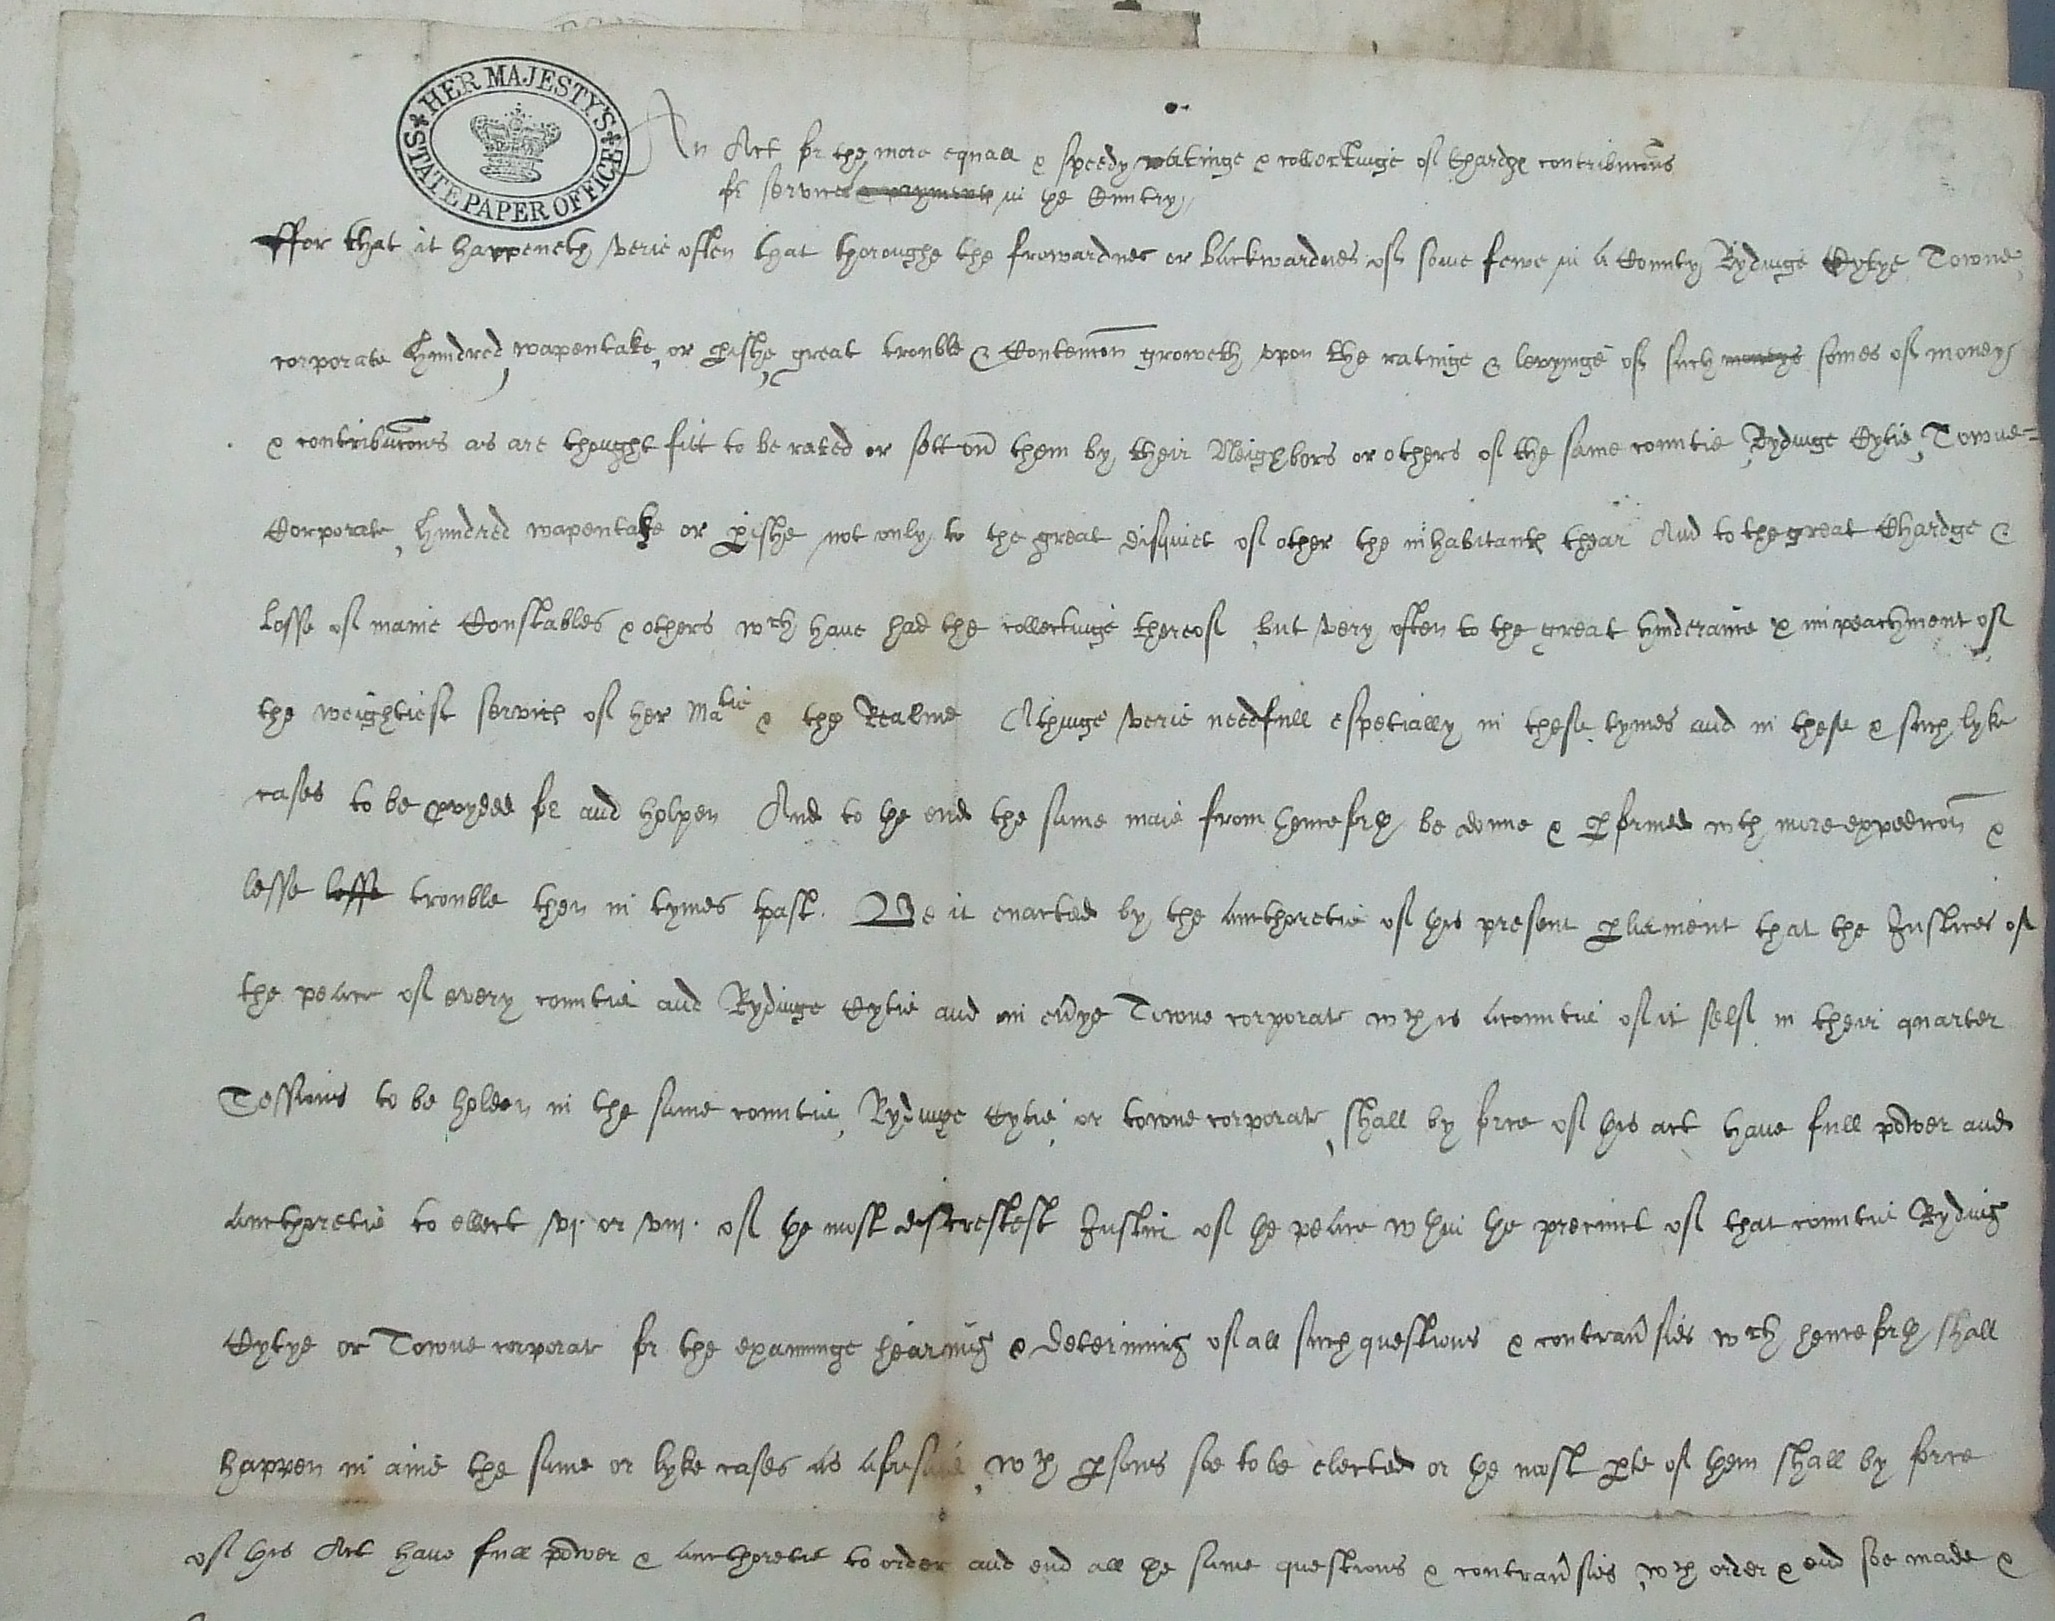 HER MAJESTY'S STATE PAPER OFFICE
An Act for the more equall & speedy ratinge & collectinge of Chardges contributions
for services & payments in the Cuntry
ffor that it happeneth verie often that thoroughe the frowardnes or backwardnes of some fewe in a County Rydinge Cytye Towne
corporate hundred wapentake or pishe great trouble & Contencon groweth vpon the ratinge & levyinge of such moneys somes of money
& contribucons as are thought fitt to be rated or sett on them by their Neighbors or others of the same countie Rydinge Cytie Towne=
Corporate hundred wapentake or pishe not only to the great disquiet of other the inhabitants thear And to the great Chardge &
losse of manie Constables & others wch have had the collectinge thereof but very often to the great hinderance & impeachment of
the weightiest services of her Matie & the Realme A thinge verie needfull espetially in these tymes and in these & such lyke
cases to be pvyded for and holpen And to the end the same maie from henceforth be donne & pformed wth more expedicon &
lesse losse trouble then in tymes past. Be it enacted by the aucthoretie of this present pliament that the Justices of
the peace of every countie and Rydinge Cytie and in evye Towne corporate wch is a countie of it self in their quarter
Sessions to be holden in the same countie Rydinge Cytie or towne corporate shall by force of this act have full power and
aucthoretie to ellect vj. or viij. of the most discretest Justices of the peace wthin the precinct of that countie Ryding
Cytye or Towne corporate for the examininge hearing & determining of all such questions & contravsies wch henceforth shall
happen in anie the same or lyke cases as aforesaid wch psons soe to be elected or the most pte of them shall by force
of this Act have full power & aucthoretie to order and end all the same questions & contravsies wch order & end soe made &